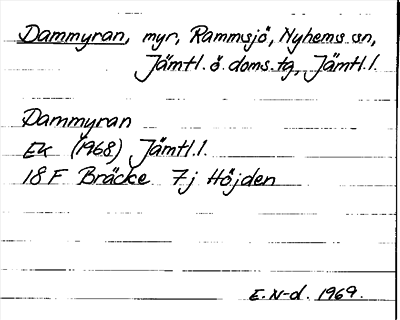 Dammyran, myr, Rammsjö, Nyhems sn,
Jämtl. ö. doms. tg, Jämtl. l.
Dammyran
Ek (1968) Jämtl. l.
18 F Bräcke 7j Höjden
E. N-d. 1969.